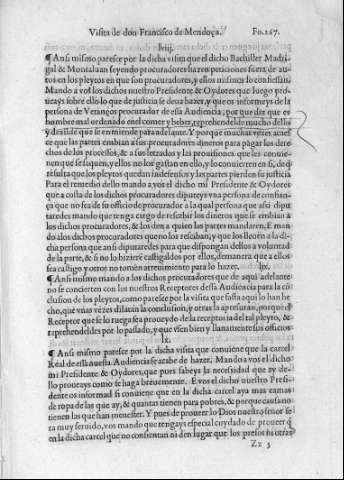 Visita de don Francisco de Mendoça. Fo. 167.
lviij.
¶ Ansi mismo paresce por la dicha visita que el dicho Bachiller Madri-
gal & Montaluan seyendo procuradores hazen peticiones fuera de au-
tos en los pleytos en que son procuradores, y ellos mismos lo confiessan.
Mando a vos los dichos nuestro Presidente & Oydores que luego pro-
ueays sobre ello lo que de justicia se deua hazer, y que os informeys de la
persona de Verangos procurador de essa Audiencia, por que diz que es
hombre mal ordenado en el comer y beber, reprehendelde mucho dello
y dezilde que se enmiende para adelante. Y porque muchas vezes acaes
ce que las partes embian a sus procuradores dineros para pagar los dere-
chos de los processos, & a sus letrados y las prouisiones que les conuie-
nen que se saquen, y ellos no los gastan en ello, y lo conuierten en si, de q̃
resulta que los pleytos quedan indefensos y las partes pierden su justicia
Para el remedio dello mando a vos el dicho mi Presidente & Oydores
que a costa de los dichos procuradores diputeys vna persona de confian-
ça que no sea de su officio de procurador a la qual persona que assi dipu-
taredes mando que tenga cargo de rescibir los dineros que se embian a
los dichos procuradores, & los den a quien las partes mandaren, E man-
do a los dichos procuradores que no los resciban, y que los lleuen a la di-
cha persona que assi diputaredes para que dispongan dellos a voluntad
de la parte, & si no lo hizieren castigaldos por ellos, de manera que a ellos
sea castigo y otros no tomen atreuimiento para lo hazer. lix.
¶ Ansi mismo mando a los dichos procuradores que de aqui adelante
no se concierten con los nuestros Receptores dessa Audiencia para la cõ
clusion de los pleytos, como paresce por la visita que fasta aqui lo han he-
cho, que vnas vezes dilatan la conclusion, y otras la apressuran, porque el
Receptor que se lo ruega sea proueydo de la receptoria del tal pleyto, &
reprehendeldes por lo passado, y que vsen bien y llanamente sus officios
lx.
¶ Ansi mismo paresce por la dicha visita que conuiene que la carcel
Real de essa nuestra Audiencia se acabe de hazer, Mando a vos el dicho
mi Presidente & Oydores, que pues sabeys la necessidad que ay de-
llo proueays como se haga breuemente. E vos el dicho nuestro Presi-
dente os informad si conuiene que en la dicha carcel aya mas camas
de ropa de las que ay, & quantas tienen para pobres, & porque causa no
tienen las que han menester. Y pues de proueer lo Dios nuestro señor se-
ra muy seruido, vos mando que tengays especial cuydado de proueer q̃
en la dicha carcel no consientan ni den lugar que los presos ni otras
Zz 3